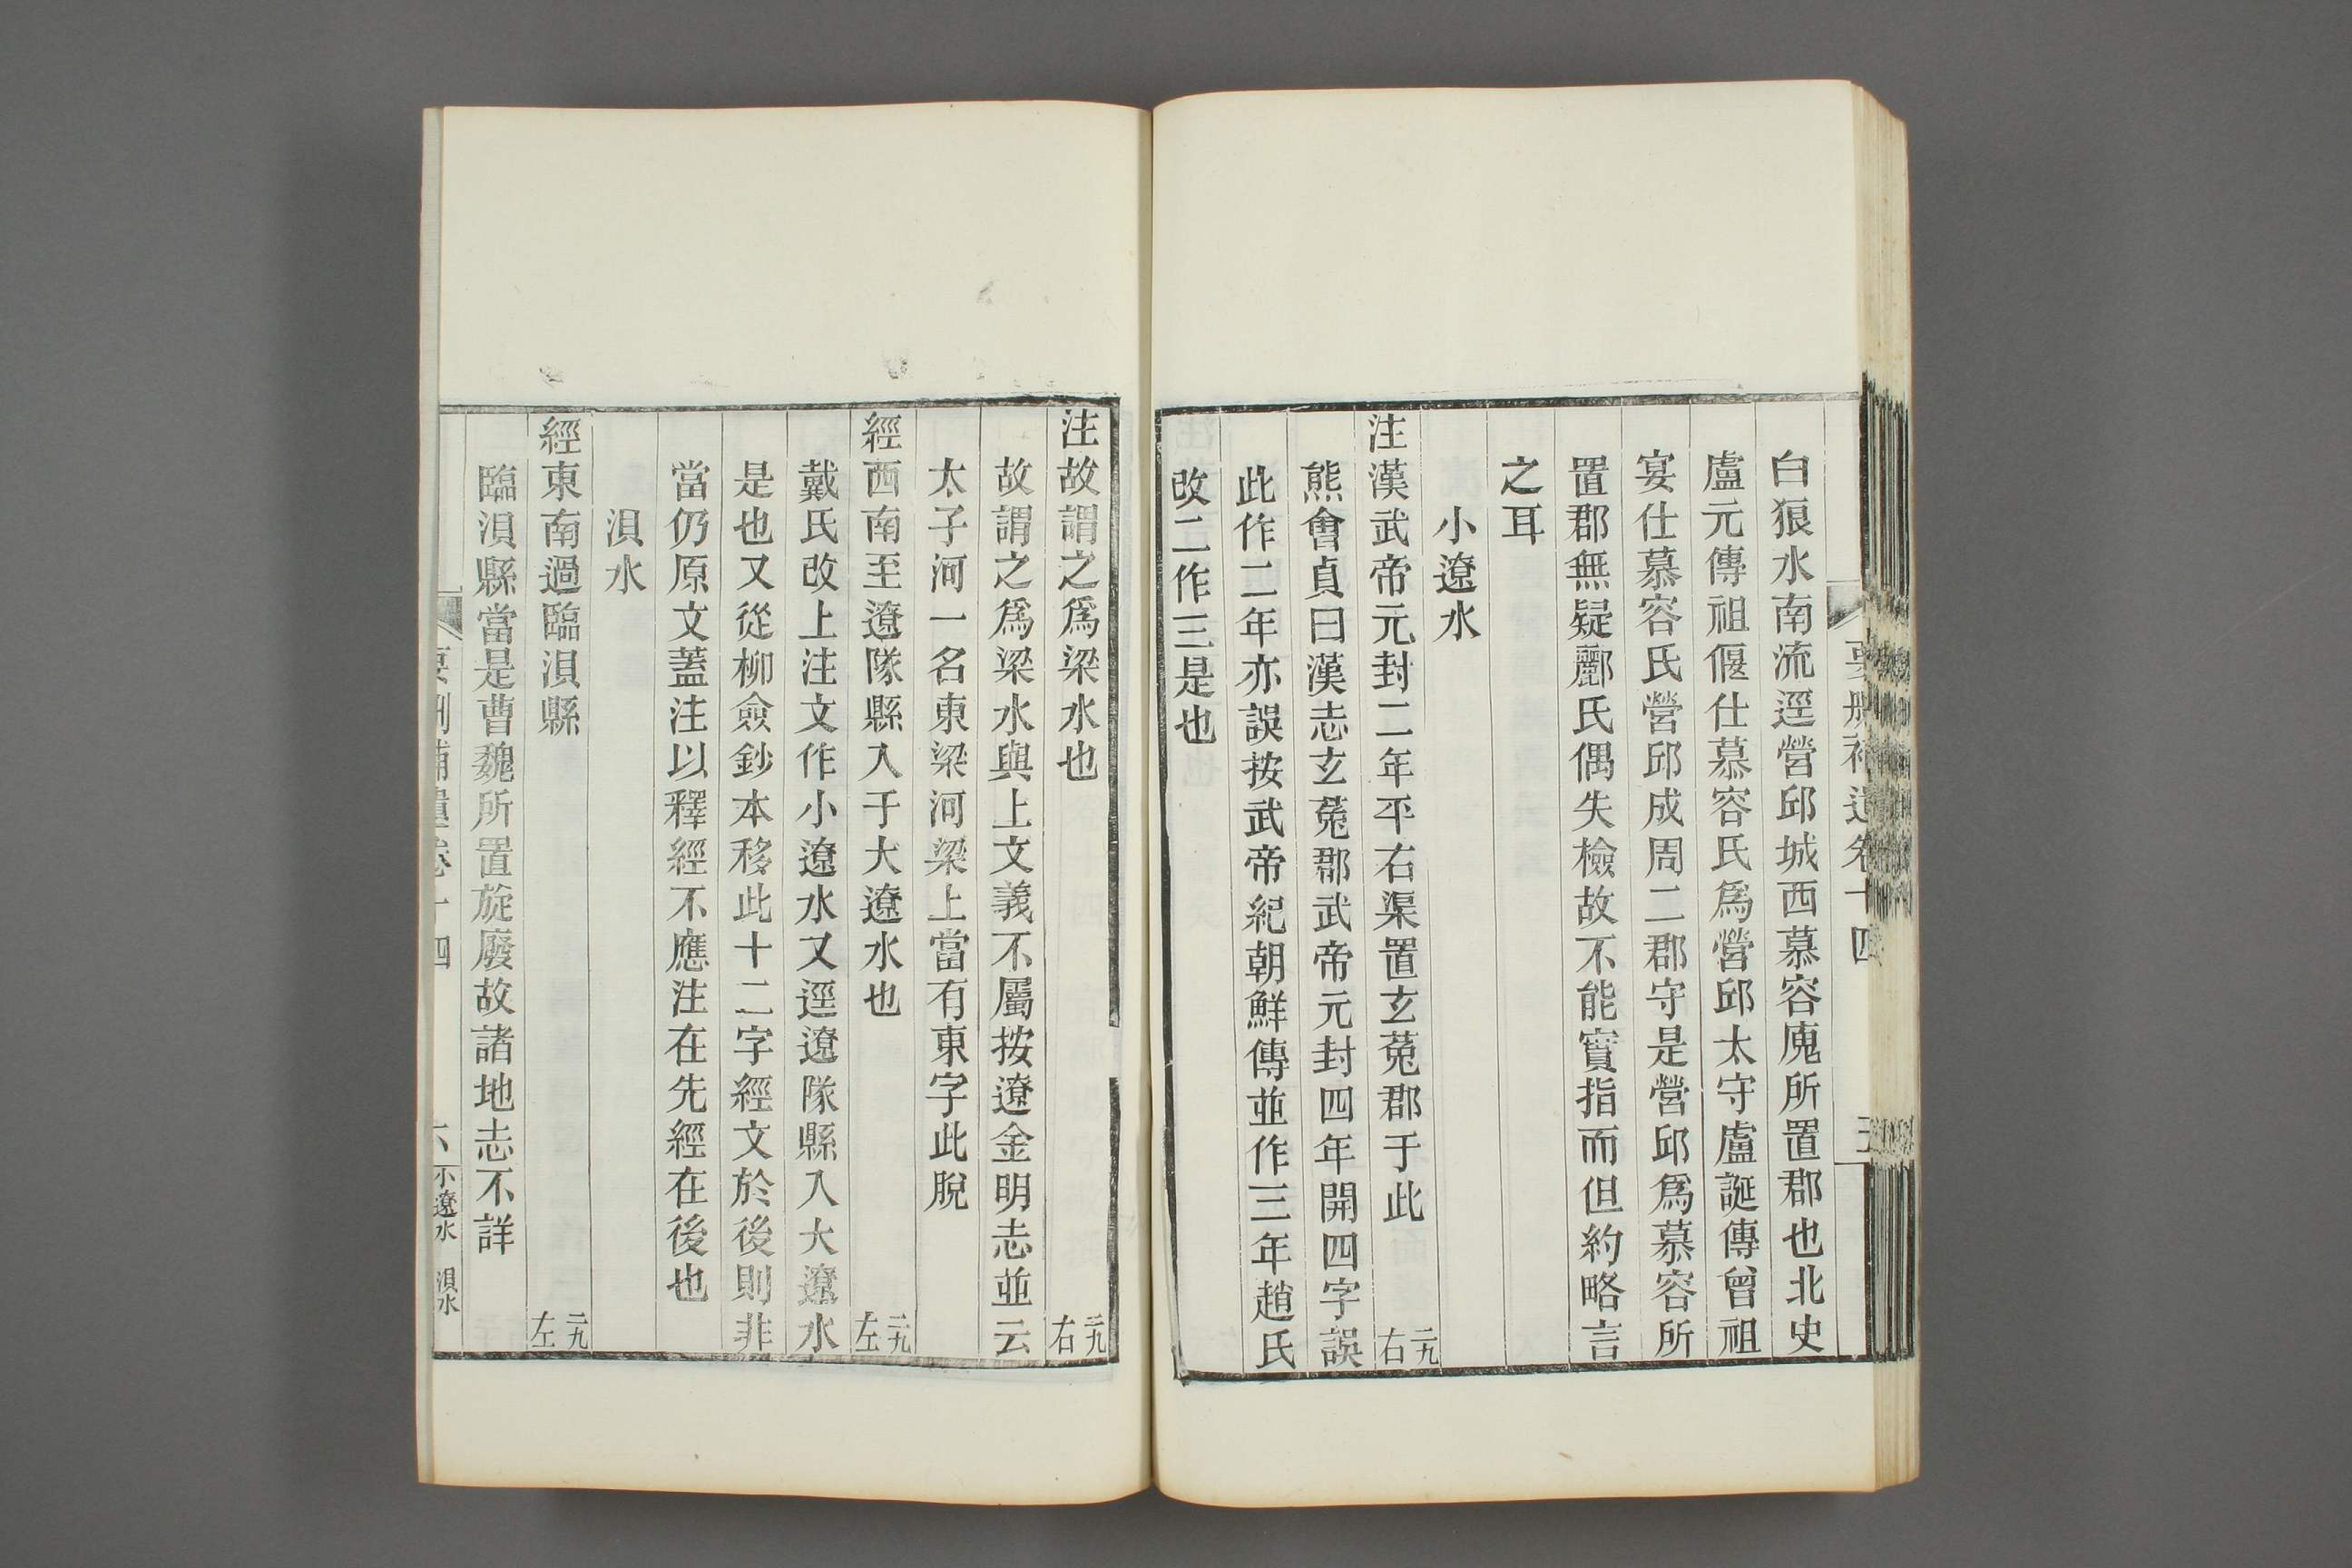 要刪補遺卷十四
白狼水南流逕營邱城西慕容廆所置郡也北史
盧元傳祖偃仕慕容氏爲營邱太守盧誕傳曾祖
宴仕慕容氏營邱成周二郡守是營邱爲慕容所
置郡無疑酈氏偶失檢故不能實指而但約略言
之耳
小遼水
注漢武帝元封二年平右渠置玄菟郡于此 二九右
熊會貞曰漢志玄菟郡武帝元封四年開四字誤
此作二年亦誤按武帝紀朝鮮傳並作三年趙氏
改二作三是也
注故謂之爲梁水也 二九右
故謂之爲梁水與上文義不屬按遼金明志並云
太子河一名東梁河梁上當有東字此脫
經西南至遼隊縣入于大遼水也 二九左
戴氏改上注文作小遼水又逕遼隊縣入大遼水
是也又從柳僉鈔本移此十二字經文於後則非
當仍原文蓋注以釋經不應注在先經在後也
浿水
經東南過臨浿縣 二九左
臨浿縣當是曹魏所置旋廢故諸地志不詳
要刪補遺卷十四 六 小遼水 浿水